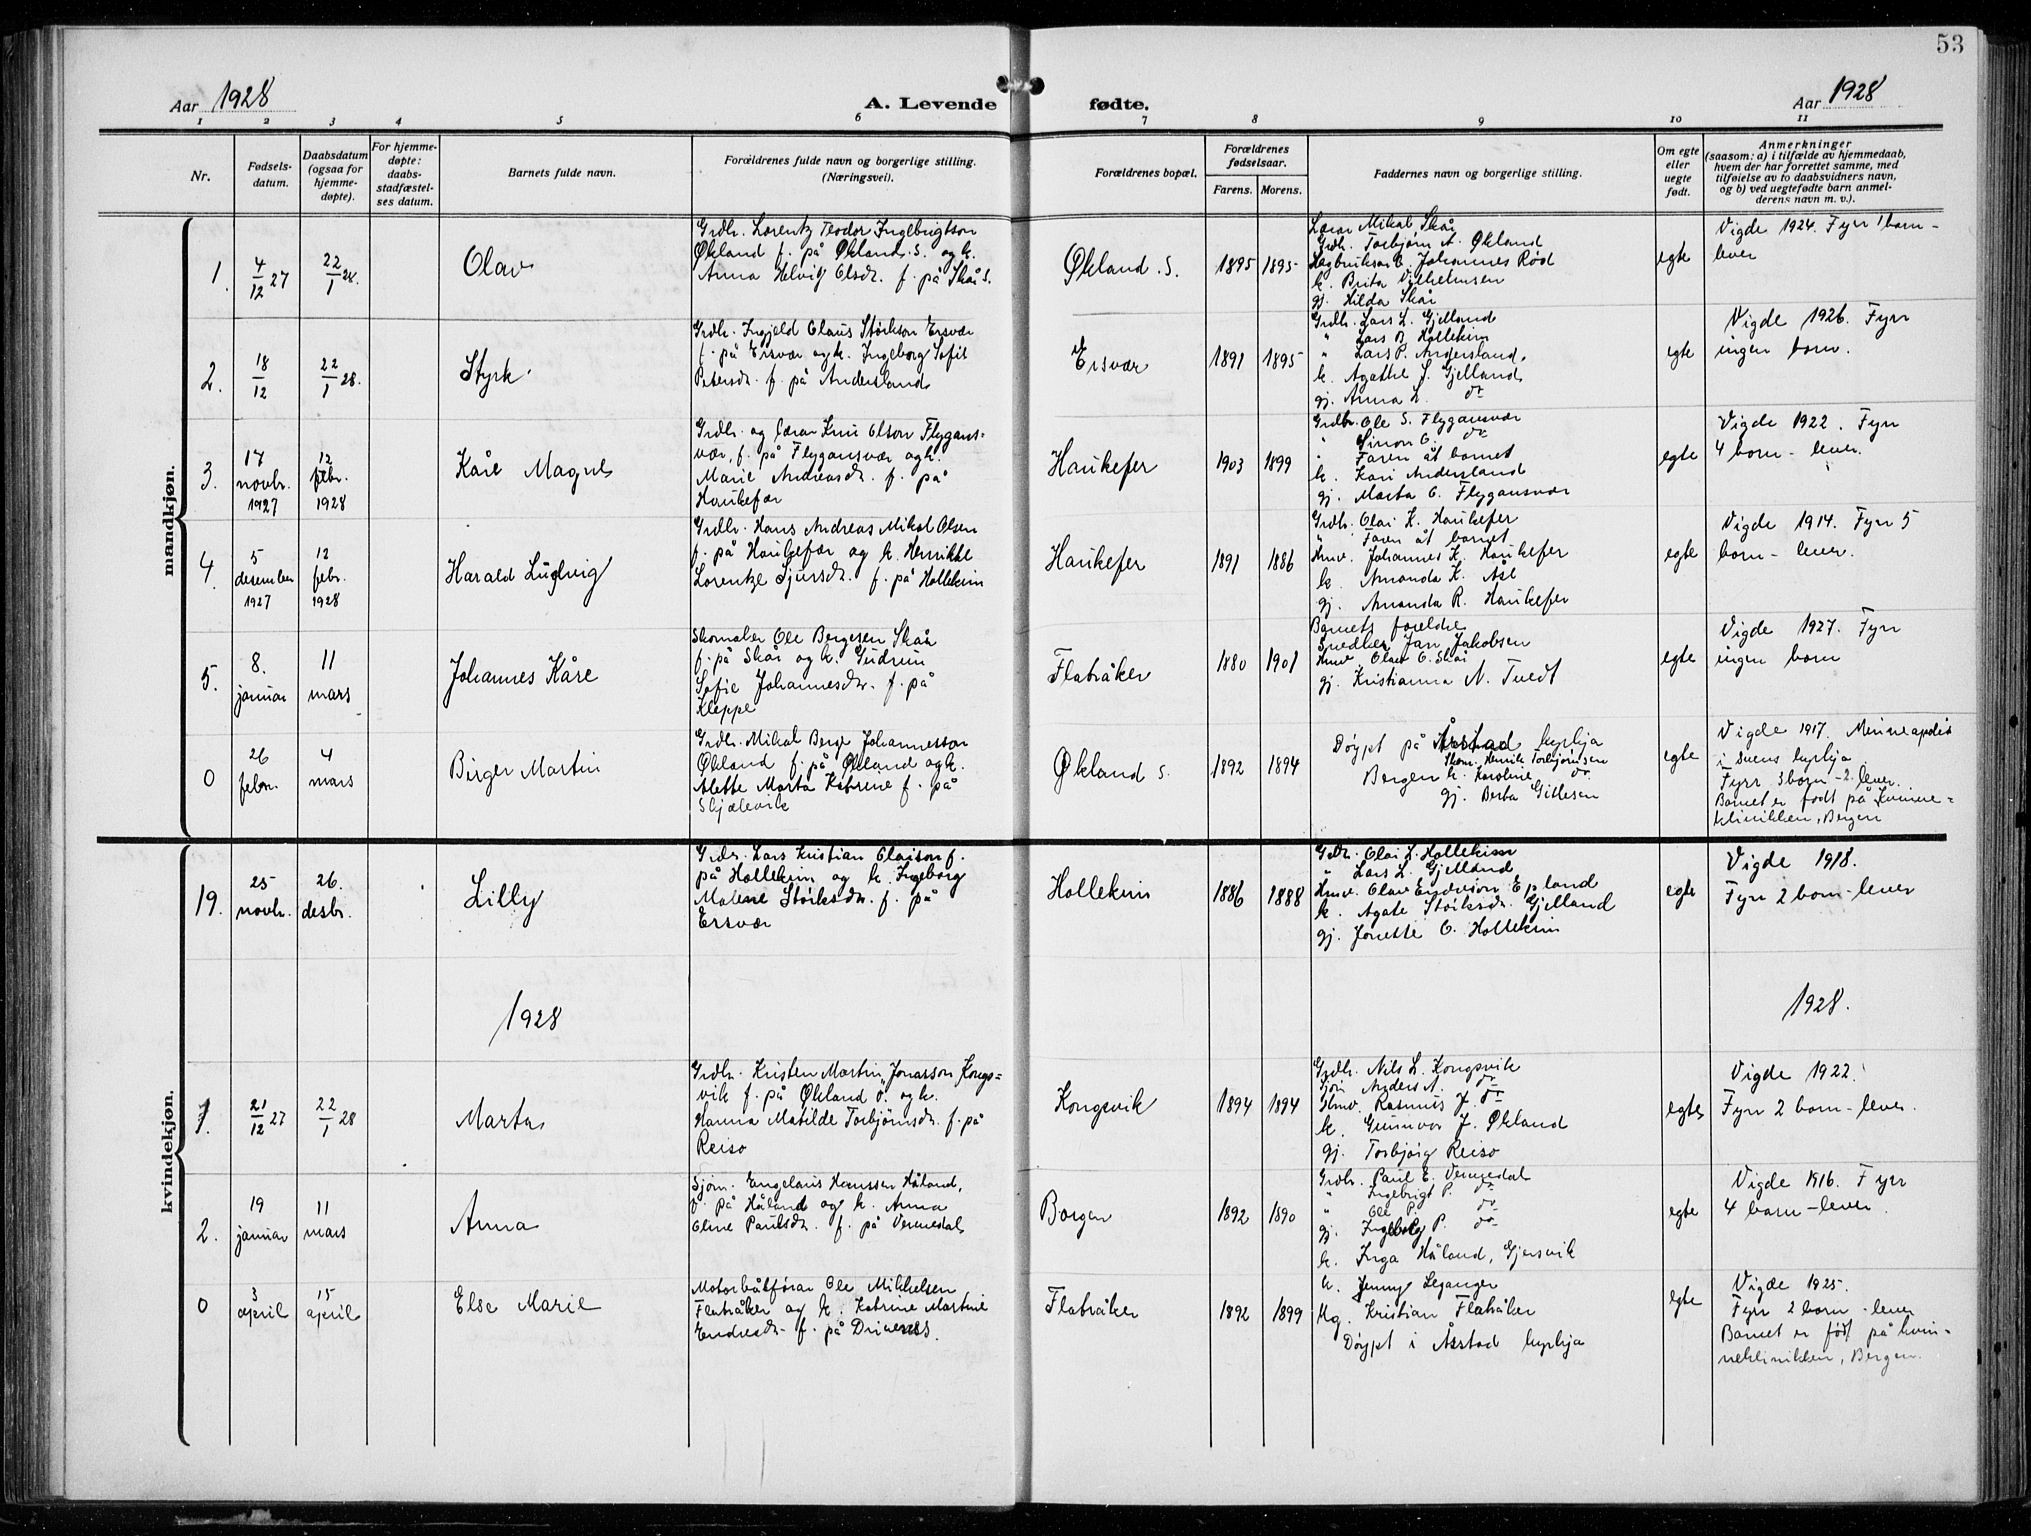 53
Aar 1928
A. Levende
fødte.
Aar 1928
1 2 3 4 5 6 7 8 9 10 11
Nr.
Fødsels-
datum.
Daabsdatum
(ogsaa for
hjemme-
døpte).
For hjemme-
døpte:
daabs-
stadfæstel-
ses datum.
Barnets fulde navn.
Forældrenes fulde navn og borgerlige stilling.
(Næringsvei).
Forældrenes bopæl.
Forældrenes
fødselsaar.
Farens. Morens.
Faddernes navn og borgerlige stilling.
Om egte
eller
uegte
født.
Anmerkninger
(saasom: a) i tilfælde av hjemmedaab,
hvem der har forrettet samme, med
tilføielse av to daabsvidners navn,
og b) ved uegtefødte barn anmel-
derens navn m. v.).
mandkjøn.
1.
4/12 27
22/1 28.
Olav
Grdbr. Lorentz Teodor Ingebrigtson
Økland f. på Økland. S. og k.
Anna Helvig Olsdr. f. på Skår S.
Økland. S.
1895
1895
Lærar Mikal Skår
Grdb. Torbjørn A. Økland
Johannes Rød
k. Brita Vilhelmsen
gj. Hilda Skår
egte
Vigde 1924. Fyrr 1 born -
lever
2.
18/12
22/1 28.
Styrk
Grdbr. Ingjeld Olaus Størkson Ersvær
f. på Ersvær og k. Ingeborg Sofie
Petersdr. f. på Andersland
Ersvær
1891
1895
Grdbr. Lars L. Gjelland
" Lars B. Hollekim
" Lars P. Andersland.
k. Agathe S. Gjelland
gj. Anna L. do
egte
Vigde 1926. Fyrr
ingen born.
3.
17
novbr.
1927
12
febr.
1928
Kåre Magne
Grdbr. og lærar Knu Olson Flygans-
vær, f. på Flygansvær og k.
Marie Andreasdr. f. på
Haukefær
Haukefer
1903
1899
Grdbr. Ole S. Flygansvær
" Simon O. do
" Faren åt barnet
k. Kari Andersland
gj. Marta O. Flygansvær
egte
Vigde 1922. Fyrr
4 born - lever.
4.
5
desember
1927
12
febr.
1928
Harald Ludvig
Grdbr. Hans Andreas Mikal Olsen
f. på Haukefær og k. Henrikke
Lorentze Sjursdr. f. på Hollekim
Haukefer
1891
1886
Grdbr. Olai K. Haukefer
" Faren åt barnet
Ymv. Johannes K. Haukefer
k. Amanda K. Åse
gj. Amanda R. Haukefer
egte
Vigde 1914. Fyrr 5
born - lever.
5.
8.
januar
11
mars
Johannes Kåre
Skomaker Ole Bergesen Skår
f. på Skår og k. Gudrun
Sofie Johannesdr. f. på
Kleppe
Flatråker
1880
1901
Barnets foreldre
Snedker Jan Jakobsen
Ymv. Olav O. Skår
gj. Kristianna N. Tvedt
egte
Vigde 1927. Fyrr
ingen born
0
26
febr.
4
mars
Birger Martin
Grdbr. Mikal Berge Johannesson
Økland f. på Økland og k.
Alette Marta Katrine f. på
Skjælevik
Økland S.
1892
1894
Døypt på Årstad kyrkja
Skom. Henrik Torbjørnsen
Bergen k. Karoline do
gj. Berta Gillesen
egte
Vigde 1917. Minneapolis
i svensk kyrkja
Fyrr 3 born - 2 lever.
Barnet er født på kvinne-
klinikken, Bergen
kvindekjøn.
19.
25
novbr.
26.
desbr.
Lilly
Grdbr. Lars Kristian Olaison f.
på Hollekim og k. Ingeborg
Malene Størksdr. f. på
Ersvær
Hollekim
1886
1888
Grdbr. Olai L. Hollekim
" Lars L. Gjelland
Ymv. Olav Endreson Epland
k. Agate Størksdr. Gjelland
gj. Jonette O. Hollekim
egte
Vigde 1918.
Fyrr 2 born - lever
1928
1928.
1.
21/12 27
22/1 28
Marta
Grdbr. Kristen Martin Jonasson Kongs-
vik f. på Økland O. og k.
Hanna Matilde Torbjørnsdr. f. på
Reiso
Kongsvik
1894
1894
Grdbr. Nils L. Kongsvik
Sjøm. Anders A. do
Ymv. Rasmus J. do
k. Gunnvor J. Økland
gj. Torbjørg Reiso
egte
Vigde 1922.
Fyrr 2 born - lever.
2.
19
januar
11
mars
Anna
Sjøm. Engelaus Hanssen Håland,
f. på Håland og k. Anna
Oline Paulsdr. f. på Vernedal
Borgen
1892
1890
Grdbr. Paul E. Vernedal
" Ingebrigt P. do
" Ole P. do
gj. Ingeborg P. do
k. Inga Håland, Gjersvik
egte
Vigde 1916. Fyrr
4 born - lever.
0
3
april
15
april
Else Marie
Motorbåtførar Ole Mikkelsen
Flatråker og k. Katrine Martine
Endresdr. f. på Drivenes.
Flatråker
1892
1899
k. Jenny Leganger
Ug. Kristian Flatråker
Døypt i Årstad kyrkja
egte
Vigde 1925.
Fyrr 2 born - lever
Barnet er født på kvin-
neklinikken, Bergen.